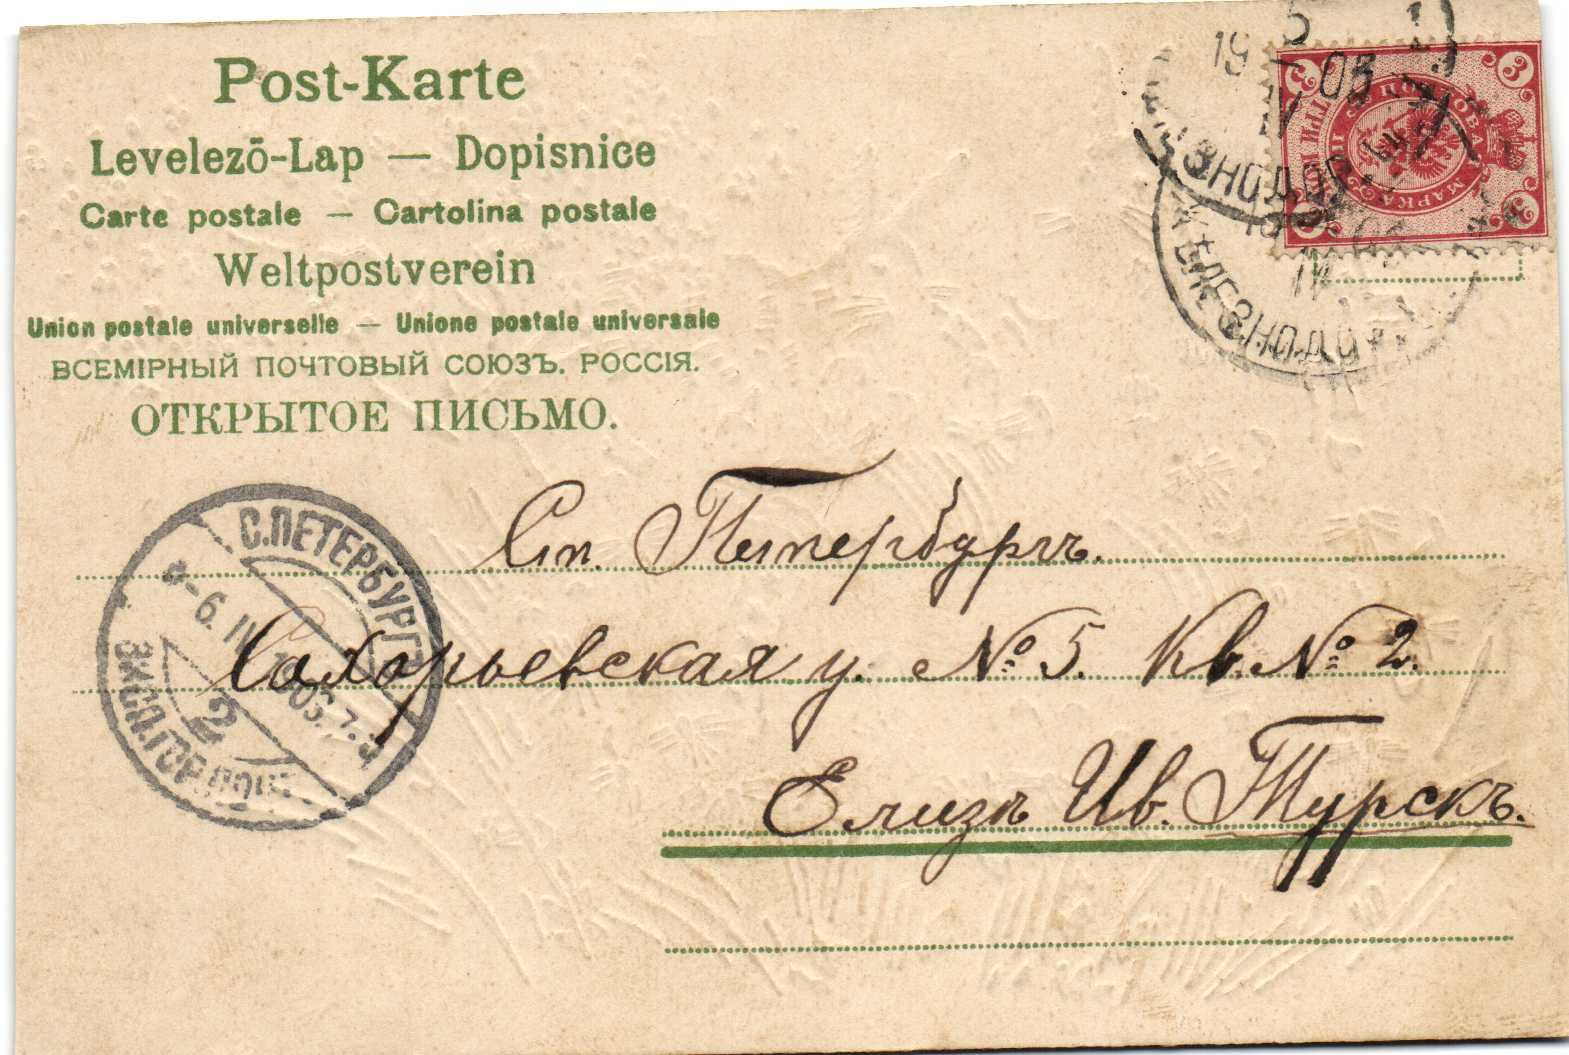 Post-Karte
Levelező-Lap — Dopisnice
Carte postale — Cartolina postale
Weltpostverein
Union postale universelle — Unione postale universale
ВСЕМІРНЫЙ ПОЧТОВЫЙ СОЮЗЪ. РОССІЯ.
ОТКРЫТОЕ ПИСЬМО.
3
МАРКА
19 5 03
IV
С.ПЕТЕРБУРГЪ
-6. IV
2
Спт. Петербургъ.
Захарьевская у. № 5. Кв. № 2.
Елизъ Ив. Турскъ.